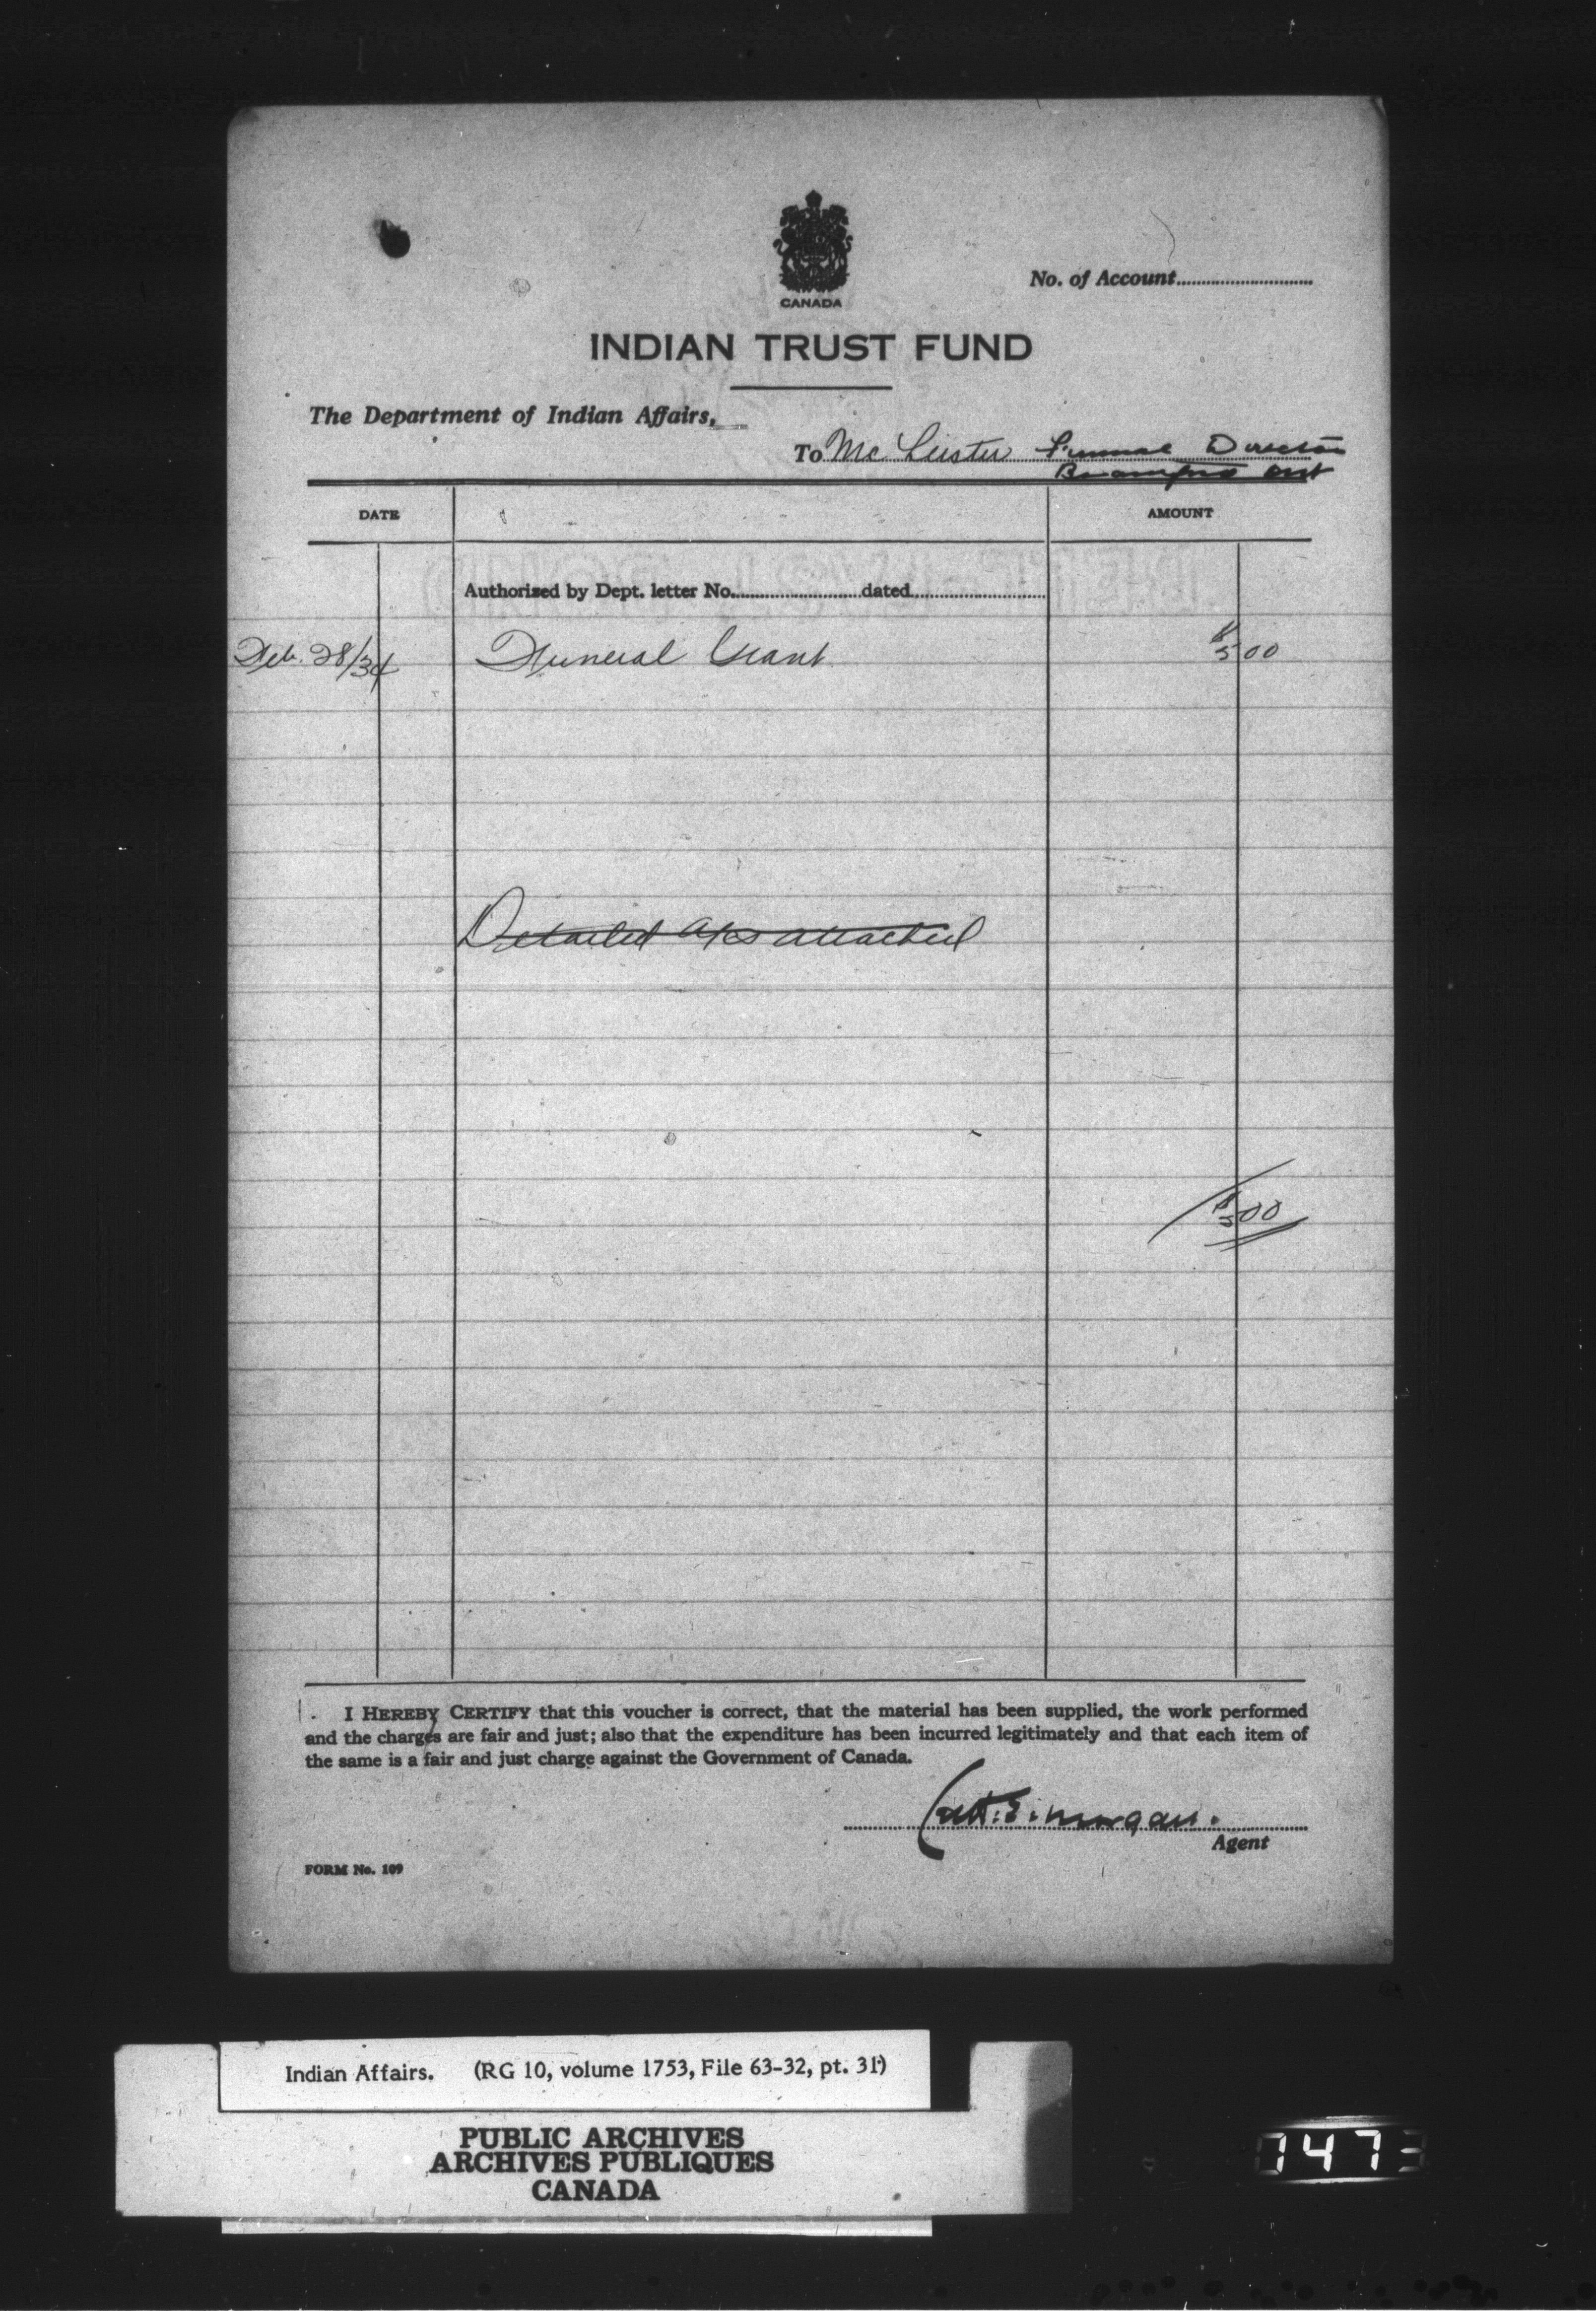 CANADA
No. of Account
INDIAN TRUST FUND
The Department of Indian Affairs,
To Mc Lister Funeral Director
Brantford Ont
DATE
AMOUNT
Authorized by Dept. letter No. dated
Feb. 28/34 Funeral Grant $5 00
Detailed a/cs attached
$5 00
I HEREBY CERTIFY that this voucher is correct, that the material has been supplied, the work performed
and the charges are fair and just; also that the expenditure has been incurred legitimately and that each item of
the same is a fair and just charge against the Government of Canada.
E. Morgan.
Agent
FORM No. 109
Indian Affairs. (RG 10, volume 1753, File 63-32, pt. 31)
PUBLIC ARCHIVES
ARCHIVES PUBLIQUES
CANADA
7473